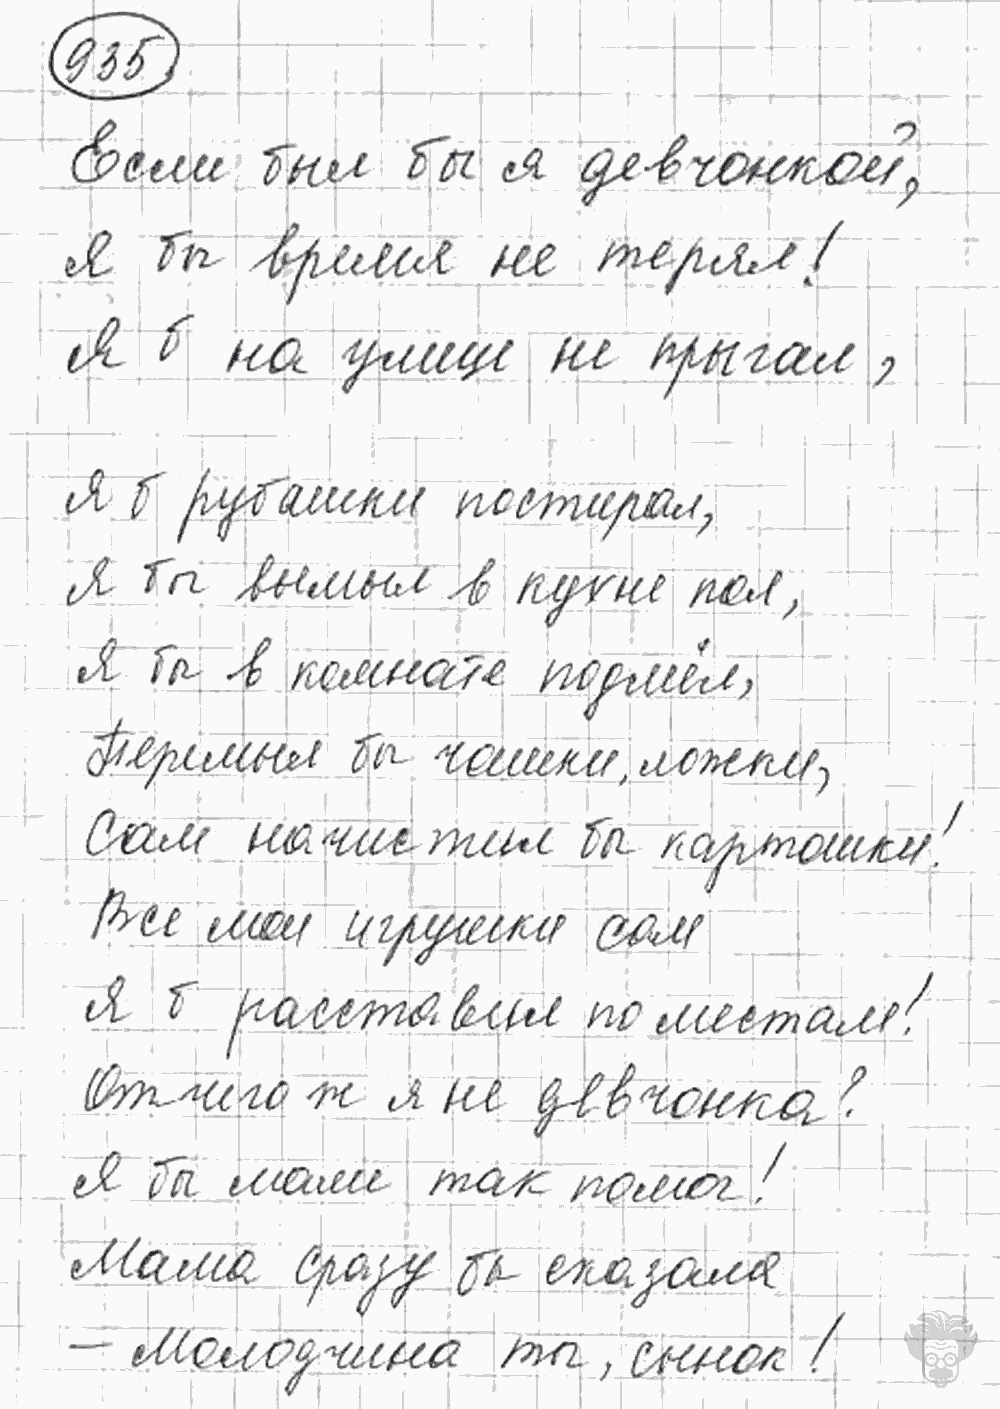 935.
Если был бы я девчонкой,
Я бы время не терял!
Я б на улице не прыгал,
Я б рубашки постирал,
Я бы вымыл в кухне пол,
Я бы в комнате подмёл,
Перемыл бы чашки, ложки,
Сам начистил бы картошки!
Все мои игрушки сам
Я б расставил по местам!
Отчего ж я не девчонка?
Я бы маме так помог!
Мама сразу бы сказала
– Молодчина ты, сынок!